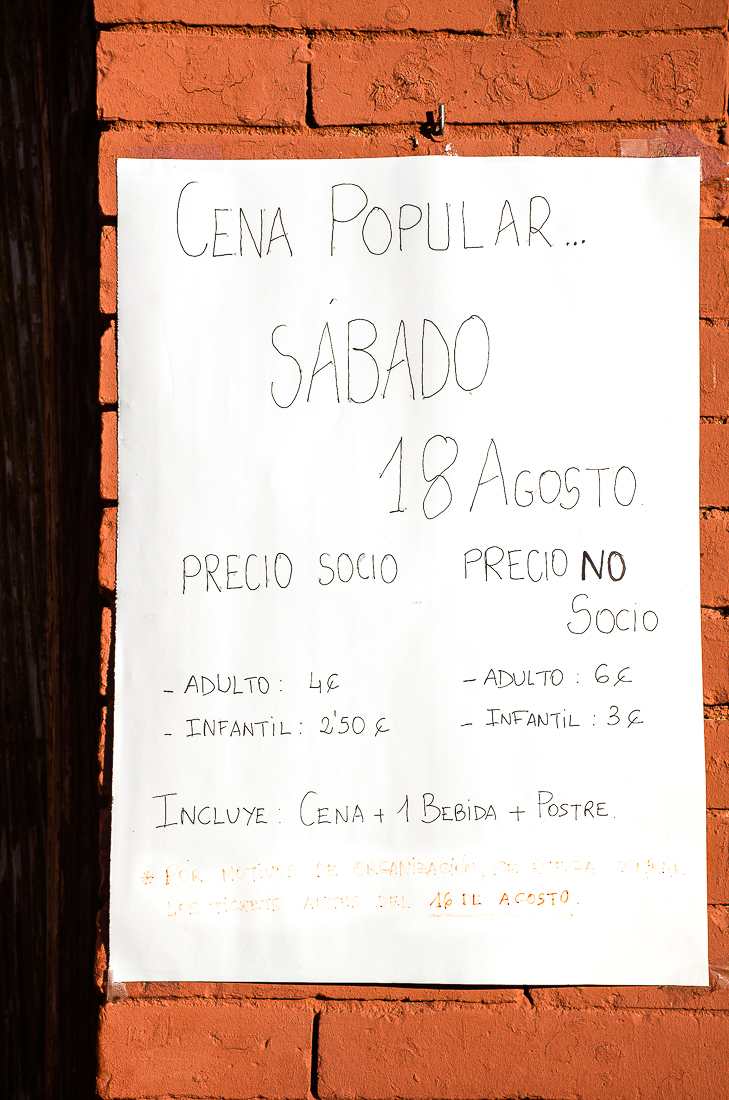 CENA POPULAR...
SÁBADO
18 AGOSTO.
PRECIO SOCIO
- ADULTO: 4€
- INFANTIL: 2'50 €
PRECIO NO
SOCIO
- ADULTO: 6€
- INFANTIL: 3€
INCLUYE: CENA + 1 BEBIDA + POSTRE.
* POR MOTIVOS DE ORGANIZACIÓN, SE RUEGA
LOS TICKETS ANTES DEL 16 DE AGOSTO.